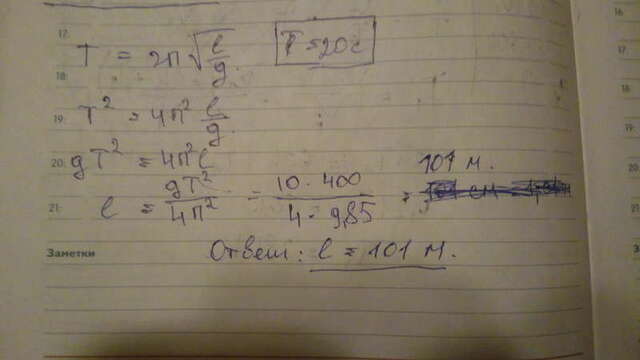 17.
T = 2π√(l/g) T = 20 с
18.
19. T² = 4π² l/g
20. gT² = 4π²l
21. l = gT²/4π² = 10 · 400/4 · 9,85 = 101 м.
Заметки Ответ: l = 101 м.
16
17.
18.
19.
20.
21.